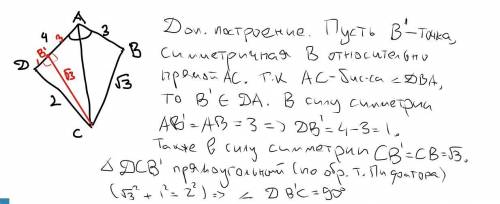 A
4
3
3
B'
D
B
√3
√3
2
C
Доп. построение. Пусть B' - точка,
симметричная B относительно
прямой AC. т.к AC - бис-са ∠DBA,
то B' ∈ DA. В силу симметрии
AB' = AB = 3 => DB' = 4-3=1.
Также в силу симметрии CB' = CB = √3.
△ DCB' прямоугольный (по обр. т. Пифагора)
(√3² + 1² = 2²) => ∠ DB'C = 90°